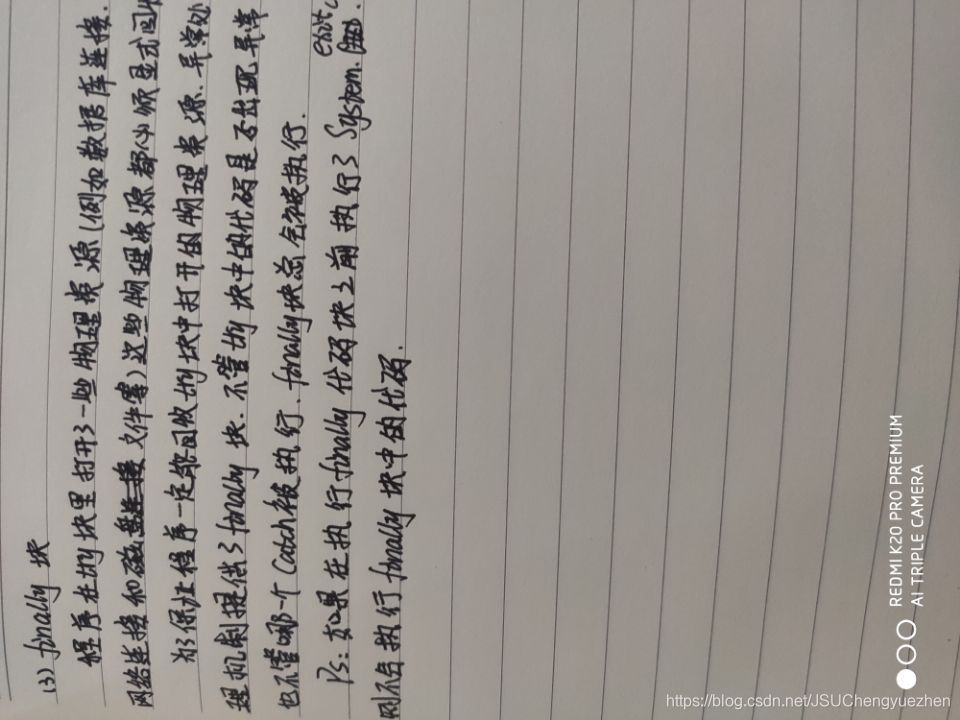 (3) finally 块
程序在try块里打开了一些物理资源(例如数据库连接.
网络连接和磁盘连接 文件等)这些物理资源都必须显式回收
为了保证程序一定能回收try块中打开的物理资源.异常处
理机制提供了finally 块.不管try 块中的代码是否出现异常
也不管哪一个Catch被执行.finally块总会被执行.
Ps:如果在执行finally 代码块之前执行了 System.exit
则不会执行finally 块中的代码.
REDMI K20 PRO PREMIUM
AI TRIPLE CAMERA
https://blog.csdn.net/JSUChengyuezhen